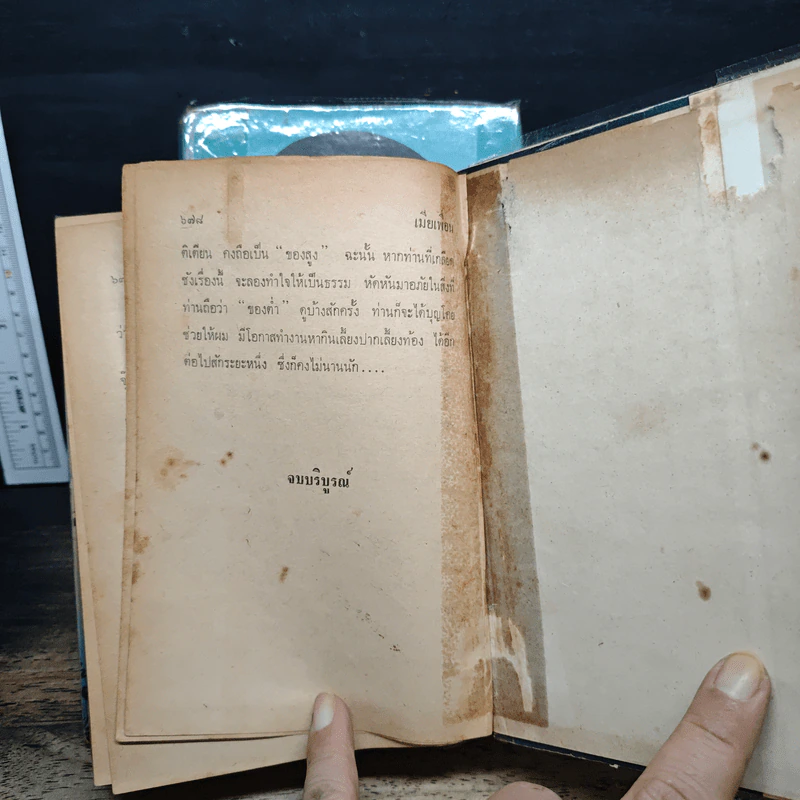 ๖๗๘ เมียเพื่อน
ติเตียน คงถือเป็น “ของสูง” ฉะนั้น หากท่านที่เกลียด
ชังเรื่องนี้ จะลองทำใจให้เป็นธรรม หัดหันมาอภัยในสิ่งที่
ท่านถือว่า “ของต่ำ” ดูบ้างสักครั้ง ท่านก็จะได้บุญโดย
ช่วยให้ผม มีโอกาสทำงานหากินเลี้ยงปากเลี้ยงท้อง ได้อีก
ต่อไปสักระยะหนึ่ง ซึ่งก็คงไม่นานนัก....
จบบริบูรณ์